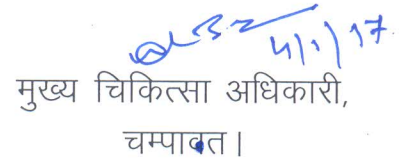 4/1/17
मुख्य चिकित्सा अधिकारी,
चम्पावत।